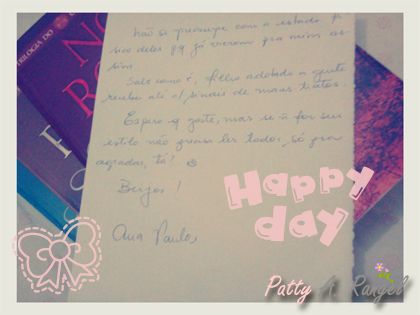 não se preocupe com o estado fí
sico deles pq já vieram pra mim as
sim.
Sabe como é, filho adotado a gente
recebe até c/ sinais de maus tratos.
Espero q goste, mas se ñ for seu
estilo não precisa ler todos, só pra
agradar, tá!
Beijos!
Ana Paula
TRILOGIA DO
NO
RO
H
Happy
day
Patty A. Rangel